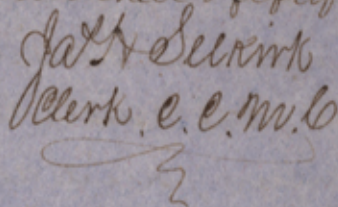 Jas H Selkirk
Clerk. C. C. M. C